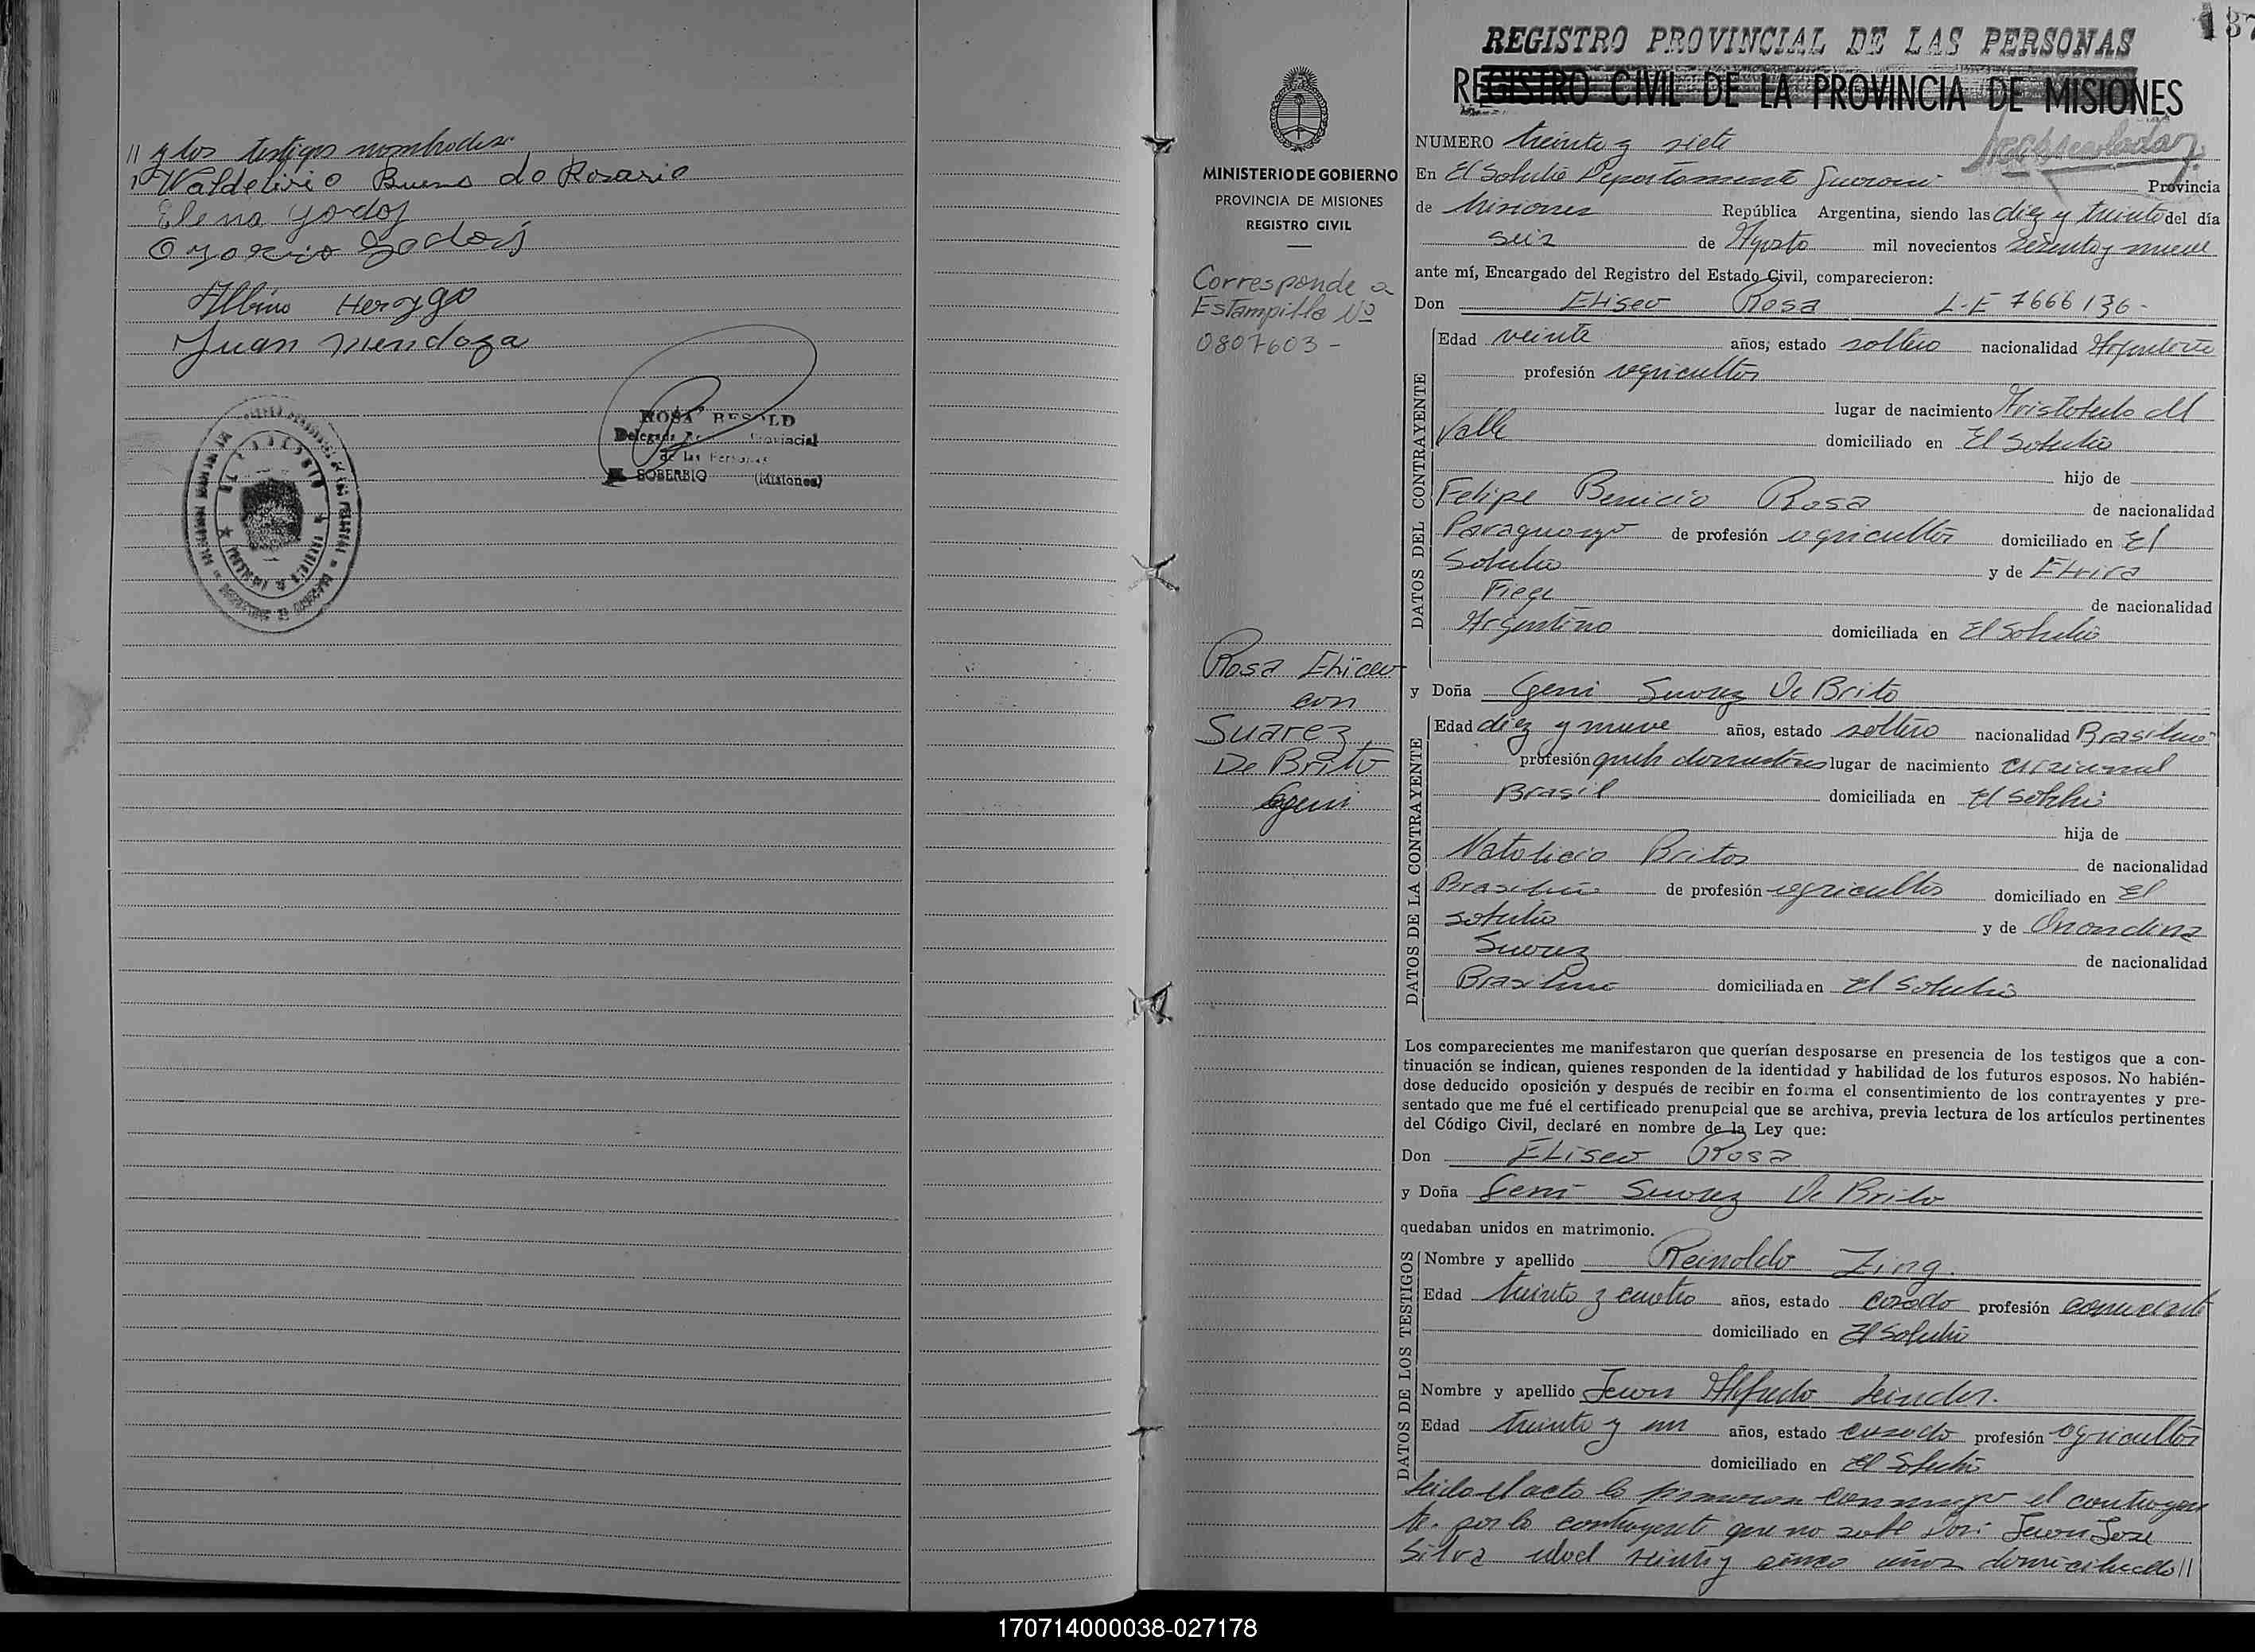 // y los testigos nombrados.
Waldelirio Bueno do Rosario
Elena Godoy
Albino Herzog
Juan Mendoza
ROSA
Delegada
de las
SOBERBIO (Misiones)
137
REGISTRO PROVINCIAL DE LAS PERSONAS
REGISTRO CIVIL DE LA PROVINCIA DE MISIONES
MINISTERIO DE GOBIERNO
PROVINCIA DE MISIONES
REGISTRO CIVIL
Corresponde a
Estampilla Nº
0807603-
Rosa Eliceo
con
Suarez
De Brito
Geni
NUMERO treinta y siete
En El Soberbio Departamento Guarani Provincia
de Misiones República Argentina, siendo las diez y treinta del día
seis de Agosto mil novecientos sesenta y nueve
ante mí, Encargado del Registro del Estado Civil, comparecieron:
Don Eliseo Rosa L-E 7666136-
DATOS DEL CONTRAYENTE
Edad veinte años, estado soltero nacionalidad Argentino
profesión agricultor
lugar de nacimiento Aristobulo del
Valle domiciliado en El Soberbio
hijo de
Felipe Benicio Rosa de nacionalidad
Paraguayo de profesión agricultor domiciliado en El
Soberbio y de Elvira
de nacionalidad
Argentina domiciliada en El Soberbio
y Doña Geni Suarez De Brito
DATOS DE LA CONTRAYENTE
Edad diez y nueve años, estado soltera nacionalidad Brasilera
profesión queh domesticos lugar de nacimiento
Brasil domiciliada en El Soberbio
hija de
Natalicio Britos de nacionalidad
Brasilero de profesión agricultor domiciliado en El
Soberbio y de Onondina
Suarez de nacionalidad
Brasilera domiciliada en El Soberbio
Los comparecientes me manifestaron que querían desposarse en presencia de los testigos que a con-
tinuación se indican, quienes responden de la identidad y habilidad de los futuros esposos. No habién-
dose deducido oposición y después de recibir en forma el consentimiento de los contrayentes y pre-
sentado que me fué el certificado prenupcial que se archiva, previa lectura de los artículos pertinentes
del Código Civil, declaré en nombre de la Ley que:
Don Eliseo Rosa
y Doña Geni Suarez De Brito
quedaban unidos en matrimonio.
DATOS DE LOS TESTIGOS
Nombre y apellido Reinoldo Zing.
Edad treinta y cuatro años, estado casado profesión comerciante
domiciliado en El Soberbio
Nombre y apellido Juan Alfredo
Edad treinta y un años, estado casado profesión agricultor
domiciliado en El Soberbio
Leida el acta la firmaron conmigo el contrayen
te. por la contrayente que no sabe Don: Juan Jose
Silva edad veinte y cinco años domiciliado //
170714000038-027178